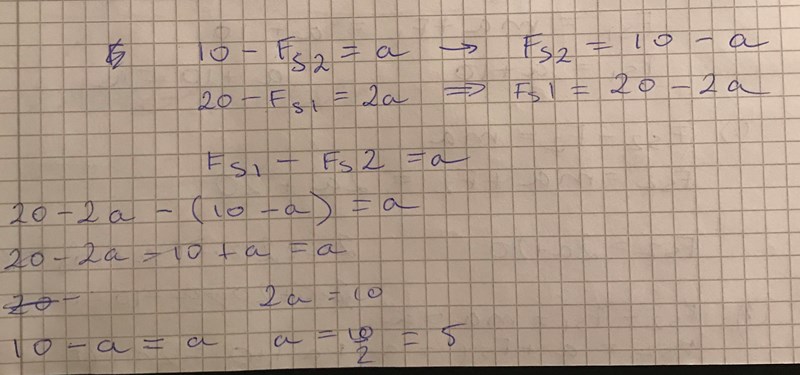 10 - FS2 = a → FS2 = 10 - a
20 - FS1 = 2a ⇒ FS1 = 20 - 2a
FS1 - FS2 = a
20 - 2a - (10 - a) = a
20 - 2a - 10 + a = a
20 -
2a = 10
10 - a = a a = 10/2 = 5